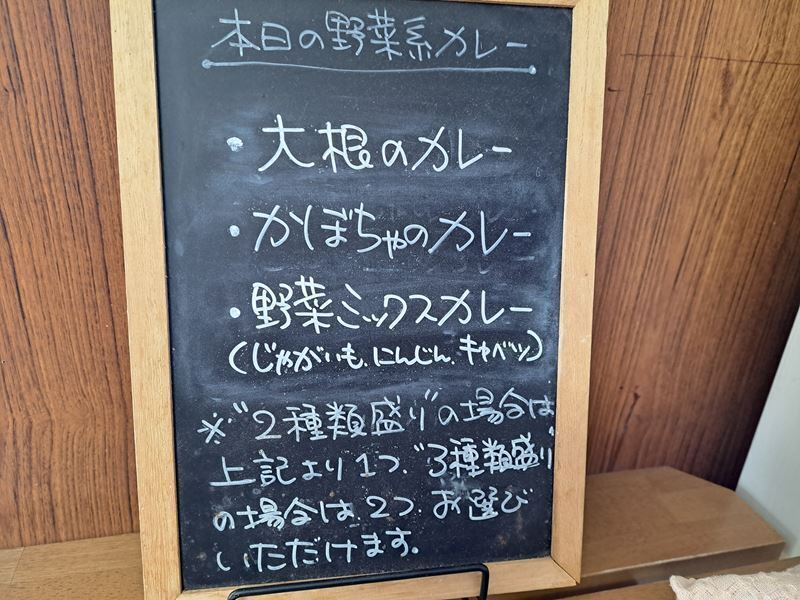 本日の野菜系カレー
・大根のカレー
・かぼちゃのカレー
・野菜ミックスカレー
(じゃがいも、にんじん、キャベツ)
※"2種類盛り"の場合は
上記より1つ、"3種類盛り"
の場合は2つ、お選び
いただけます。